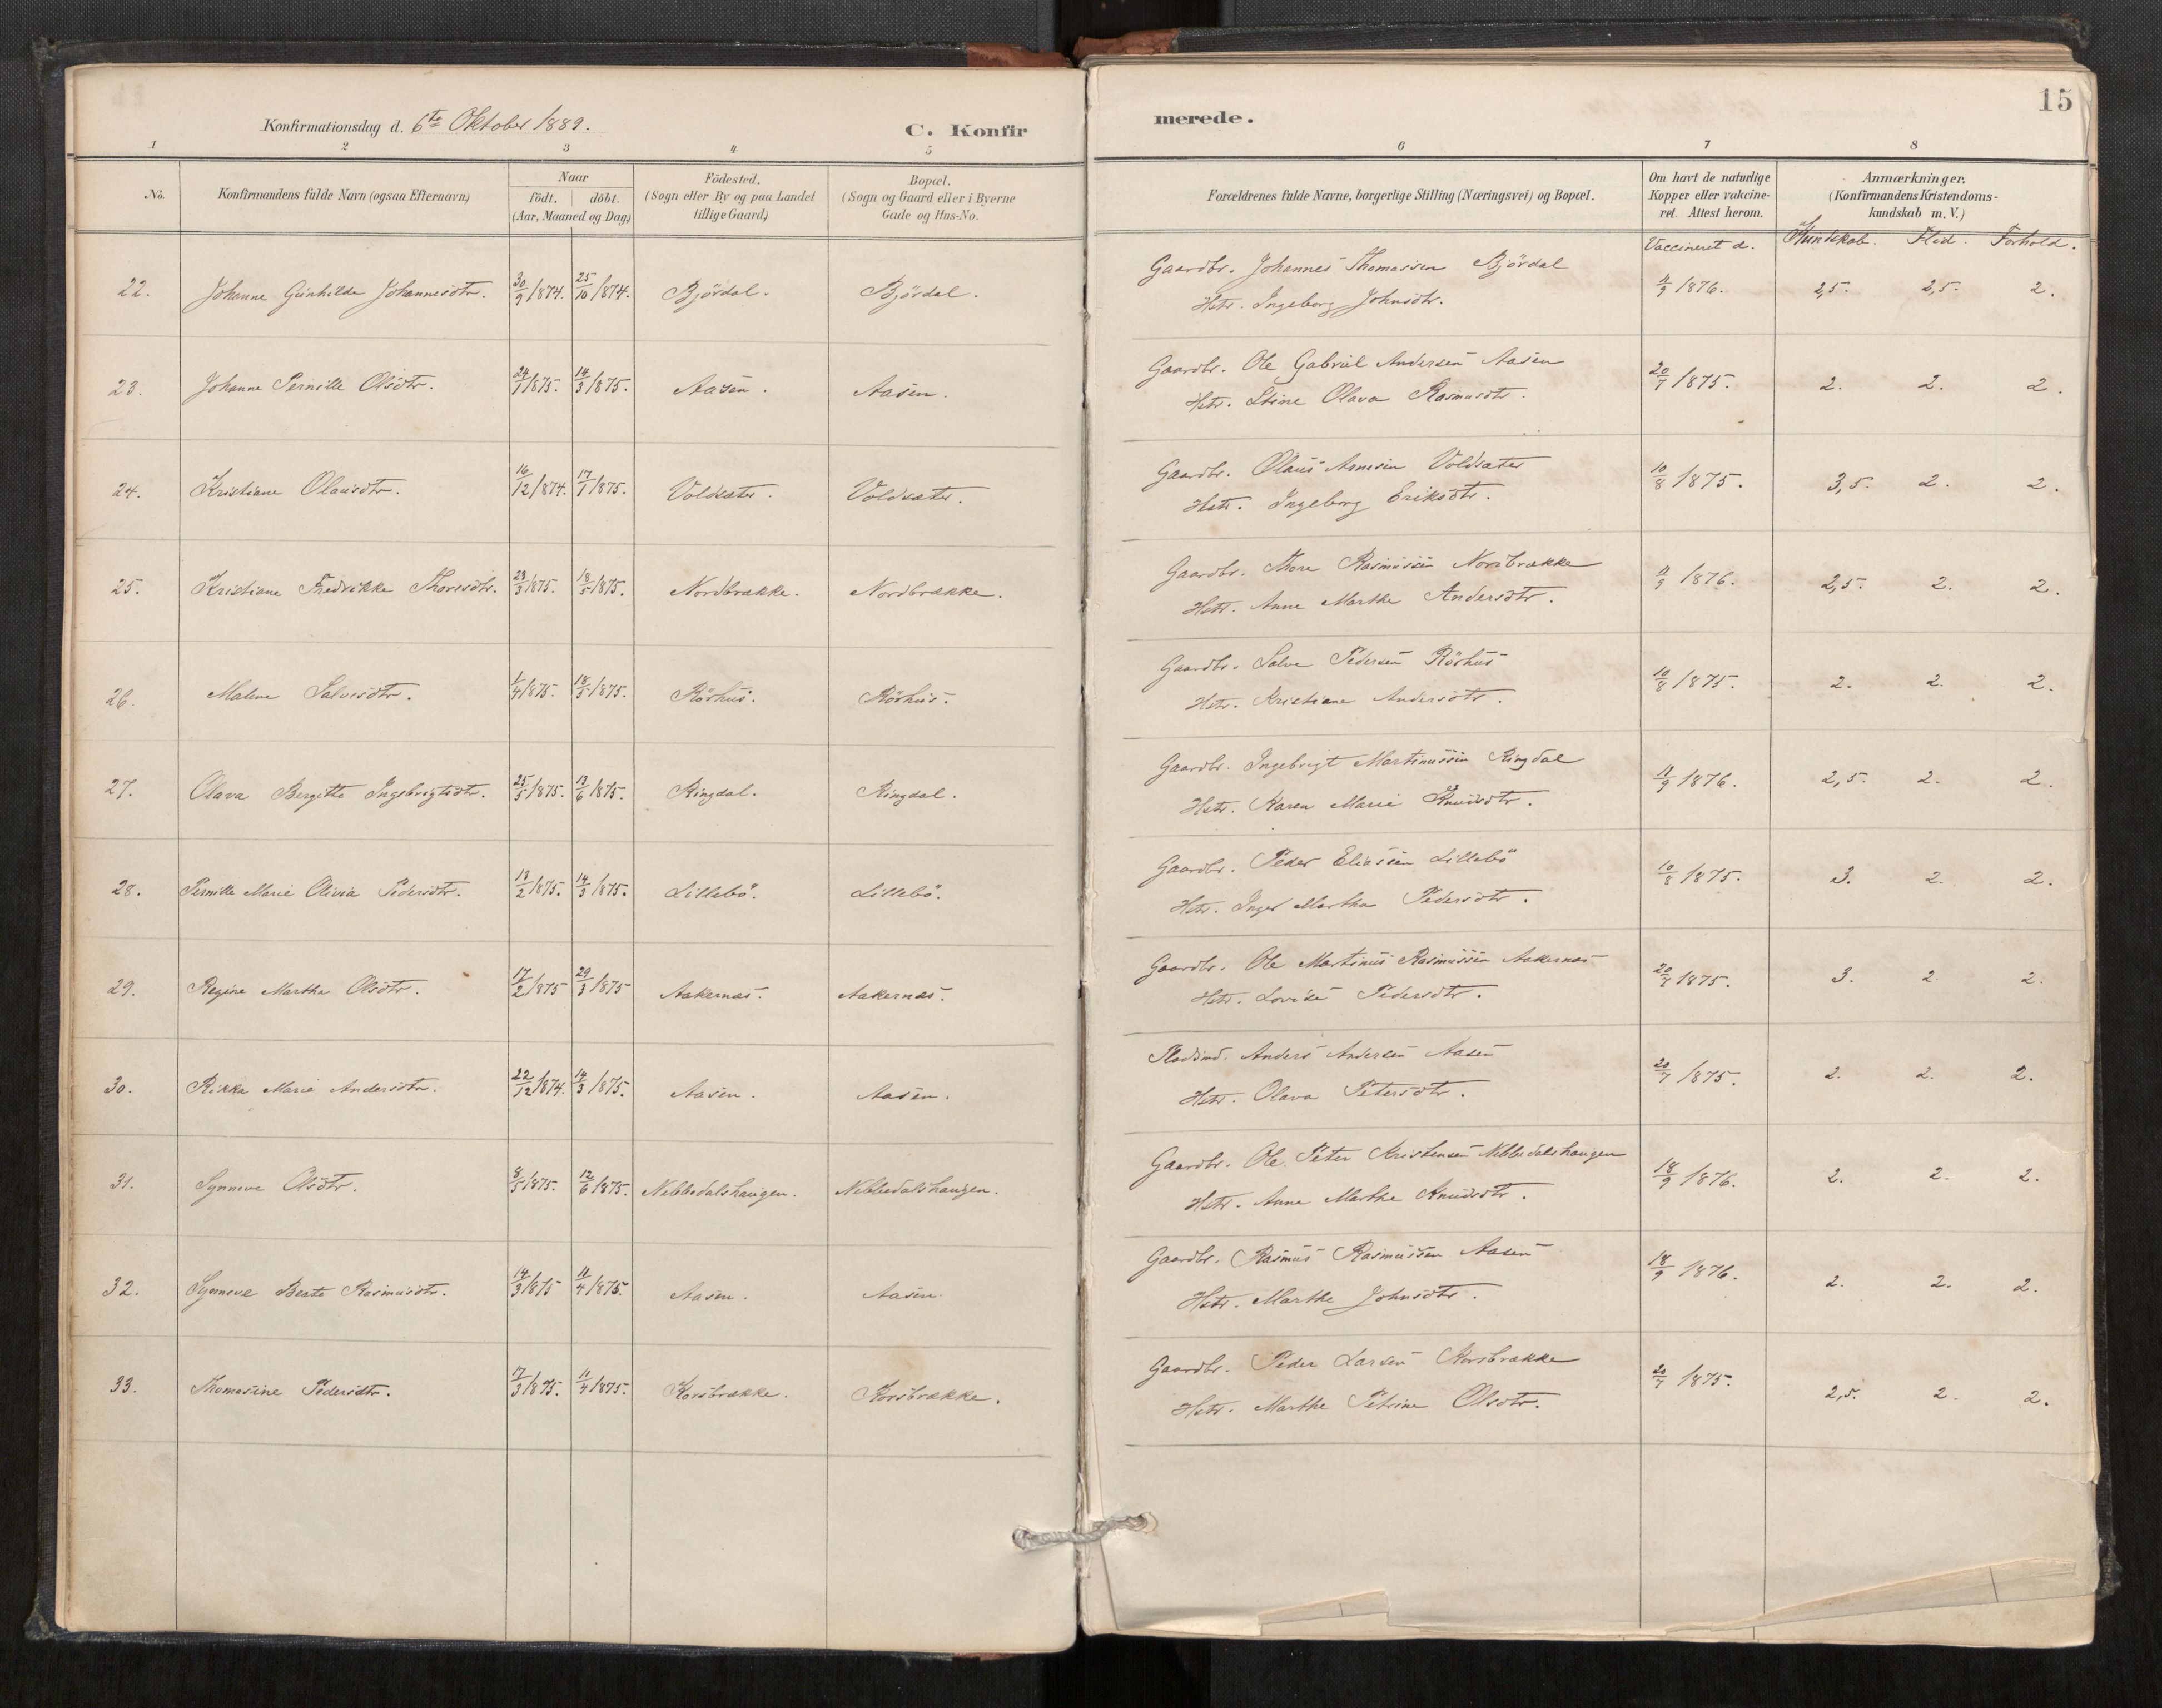 Konfirmationsdag d. 6te Oktober 1889. C. Konfirmerede. 15
1 2 3 4 5 6 7 8
No. Konfirmandens fulde Navn (ogsaa Efternavn) Naar födt. döbt. (Aar, Maaned og Dag) Födested. (Sogn eller By og paa Landet tillige Gaard) Bopæl. (Sogn og Gaard eller i Byerne Gade og Hus-No. Forældrenes fulde Navne, borgerlige Stilling (Næringsvei) og Bopæl. Om havt de naturlige Kopper eller vakcineret. Attest herom. Anmærkninger. (Konfirmandens Kristendomskundskab m. V.)
Vaccineret d. Kundskab. Flid. Forhold.
22. Johanne Gunhilde Johannesdtr. 30/9 1874. 25/10 1874. Björdal. Björdal. Gaardbr. Johannes Thomassen Björdal
Hstr. Ingeborg Johnsdtr. 11/9 1876. 2,5. 2,5. 2.
23. Johanne Pernille Olsdtr. 24/1 1875. 14/3 1875. Aasen. Aasen. Gaardbr. Ole Gabriel Andersen Aasen
Hstr. Stine Olava Rasmusdtr. 20/7 1875. 2. 2. 2.
24. Kristiane Olausdtr. 16/12 1874. 17/1 1875. Voldsæter. Voldsæter. Gaardbr. Olaus Arnesen Voldsæter
Hstr. Ingeborg Eriksdtr. 10/8 1875. 3,5. 2. 2.
25. Kristiane Fredrikke Thoresdtr. 23/3 1875. 18/5 1875. Nordbrække. Nordbrække. Gaardbr. Thore Rasmussen Nordbrække
Hstr. Anne Marthe Andersdtr. 11/9 1876. 2,5. 2. 2.
26. Malene Salvesdtr. 1/4 1875. 18/5 1875. Rörhus. Rörhus. Gaardbr. Salve Pedersen Rörhus
Hstr. Kristiane Andersdtr. 10/8 1875. 2. 2. 2.
27. Olava Bergitte Ingebrigtsdtr. 25/5 1875. 13/6 1875. Ringdal. Ringdal. Gaardbr. Ingebrigt Martinussen Ringdal
Hstr. Karen Marie Knudsdtr. 11/9 1876. 2,5. 2. 2.
28. Pernille Marie Olivia Pedersdtr. 18/2 1875. 14/3 1875. Lillebö. Lillebö. Gaardbr. Peder Eliassen Lillebö
Hstr. Inger Martha Pedersdtr. 10/8 1875. 3. 2. 2.
29. Regine Martha Olsdtr. 17/2 1875 29/3 1875 Aakernæs. Aakernæs. Gaardbr. Ole Martinus Rasmussen Aakernæs
Hstr. Lovise Pedersdtr. 20/7 1875. 3. 2. 2.
30. Rikka Marie Andersdtr. 22/12 1874. 14/3 1875. Aasen. Aasen. Pladsmd. Anders Andersen Aasen
Hstr. Olava Petersdtr. 20/7 1875. 2. 2. 2.
31. Synneve Olsdtr. 8/5 1875. 12/6 1875. Nebbedalshaugen. Nebbedalshaugen. Gaardbr. Ole Peter Kristensen Nebbedalshaugen
Hstr. Anne Marthe Knudsdtr. 18/9 1876. 2. 2. 2.
32. Synneve Beate Rasmusdtr. 14/3 1875 11/4 1875. Aasen. Aasen. Gaardbr. Rasmus Rasmussen Aasen
Hstr. Marthe Johnsdtr. 18/9 1876. 2. 2. 2.
33. Thomasine Pedersdtr. 17/3 1875. 11/4 1875. Korsbrække. Korsbrække. Gaardbr. Peder Larsen Korsbrække
Hstr. Marthe Petrine Olsdtr. 20/7 1875. 2,5. 2. 2.